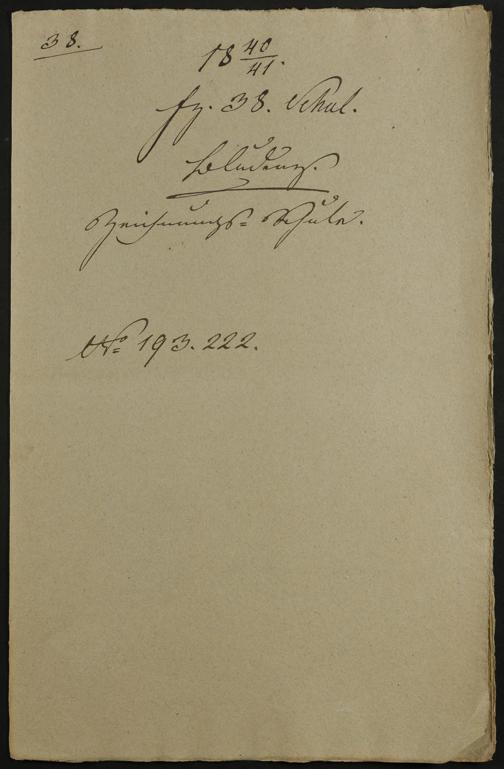 38.
18 40/41.
fz. 38. Schul.
Bludenz.
Zeichnungs= Schule.
No 193. 222.